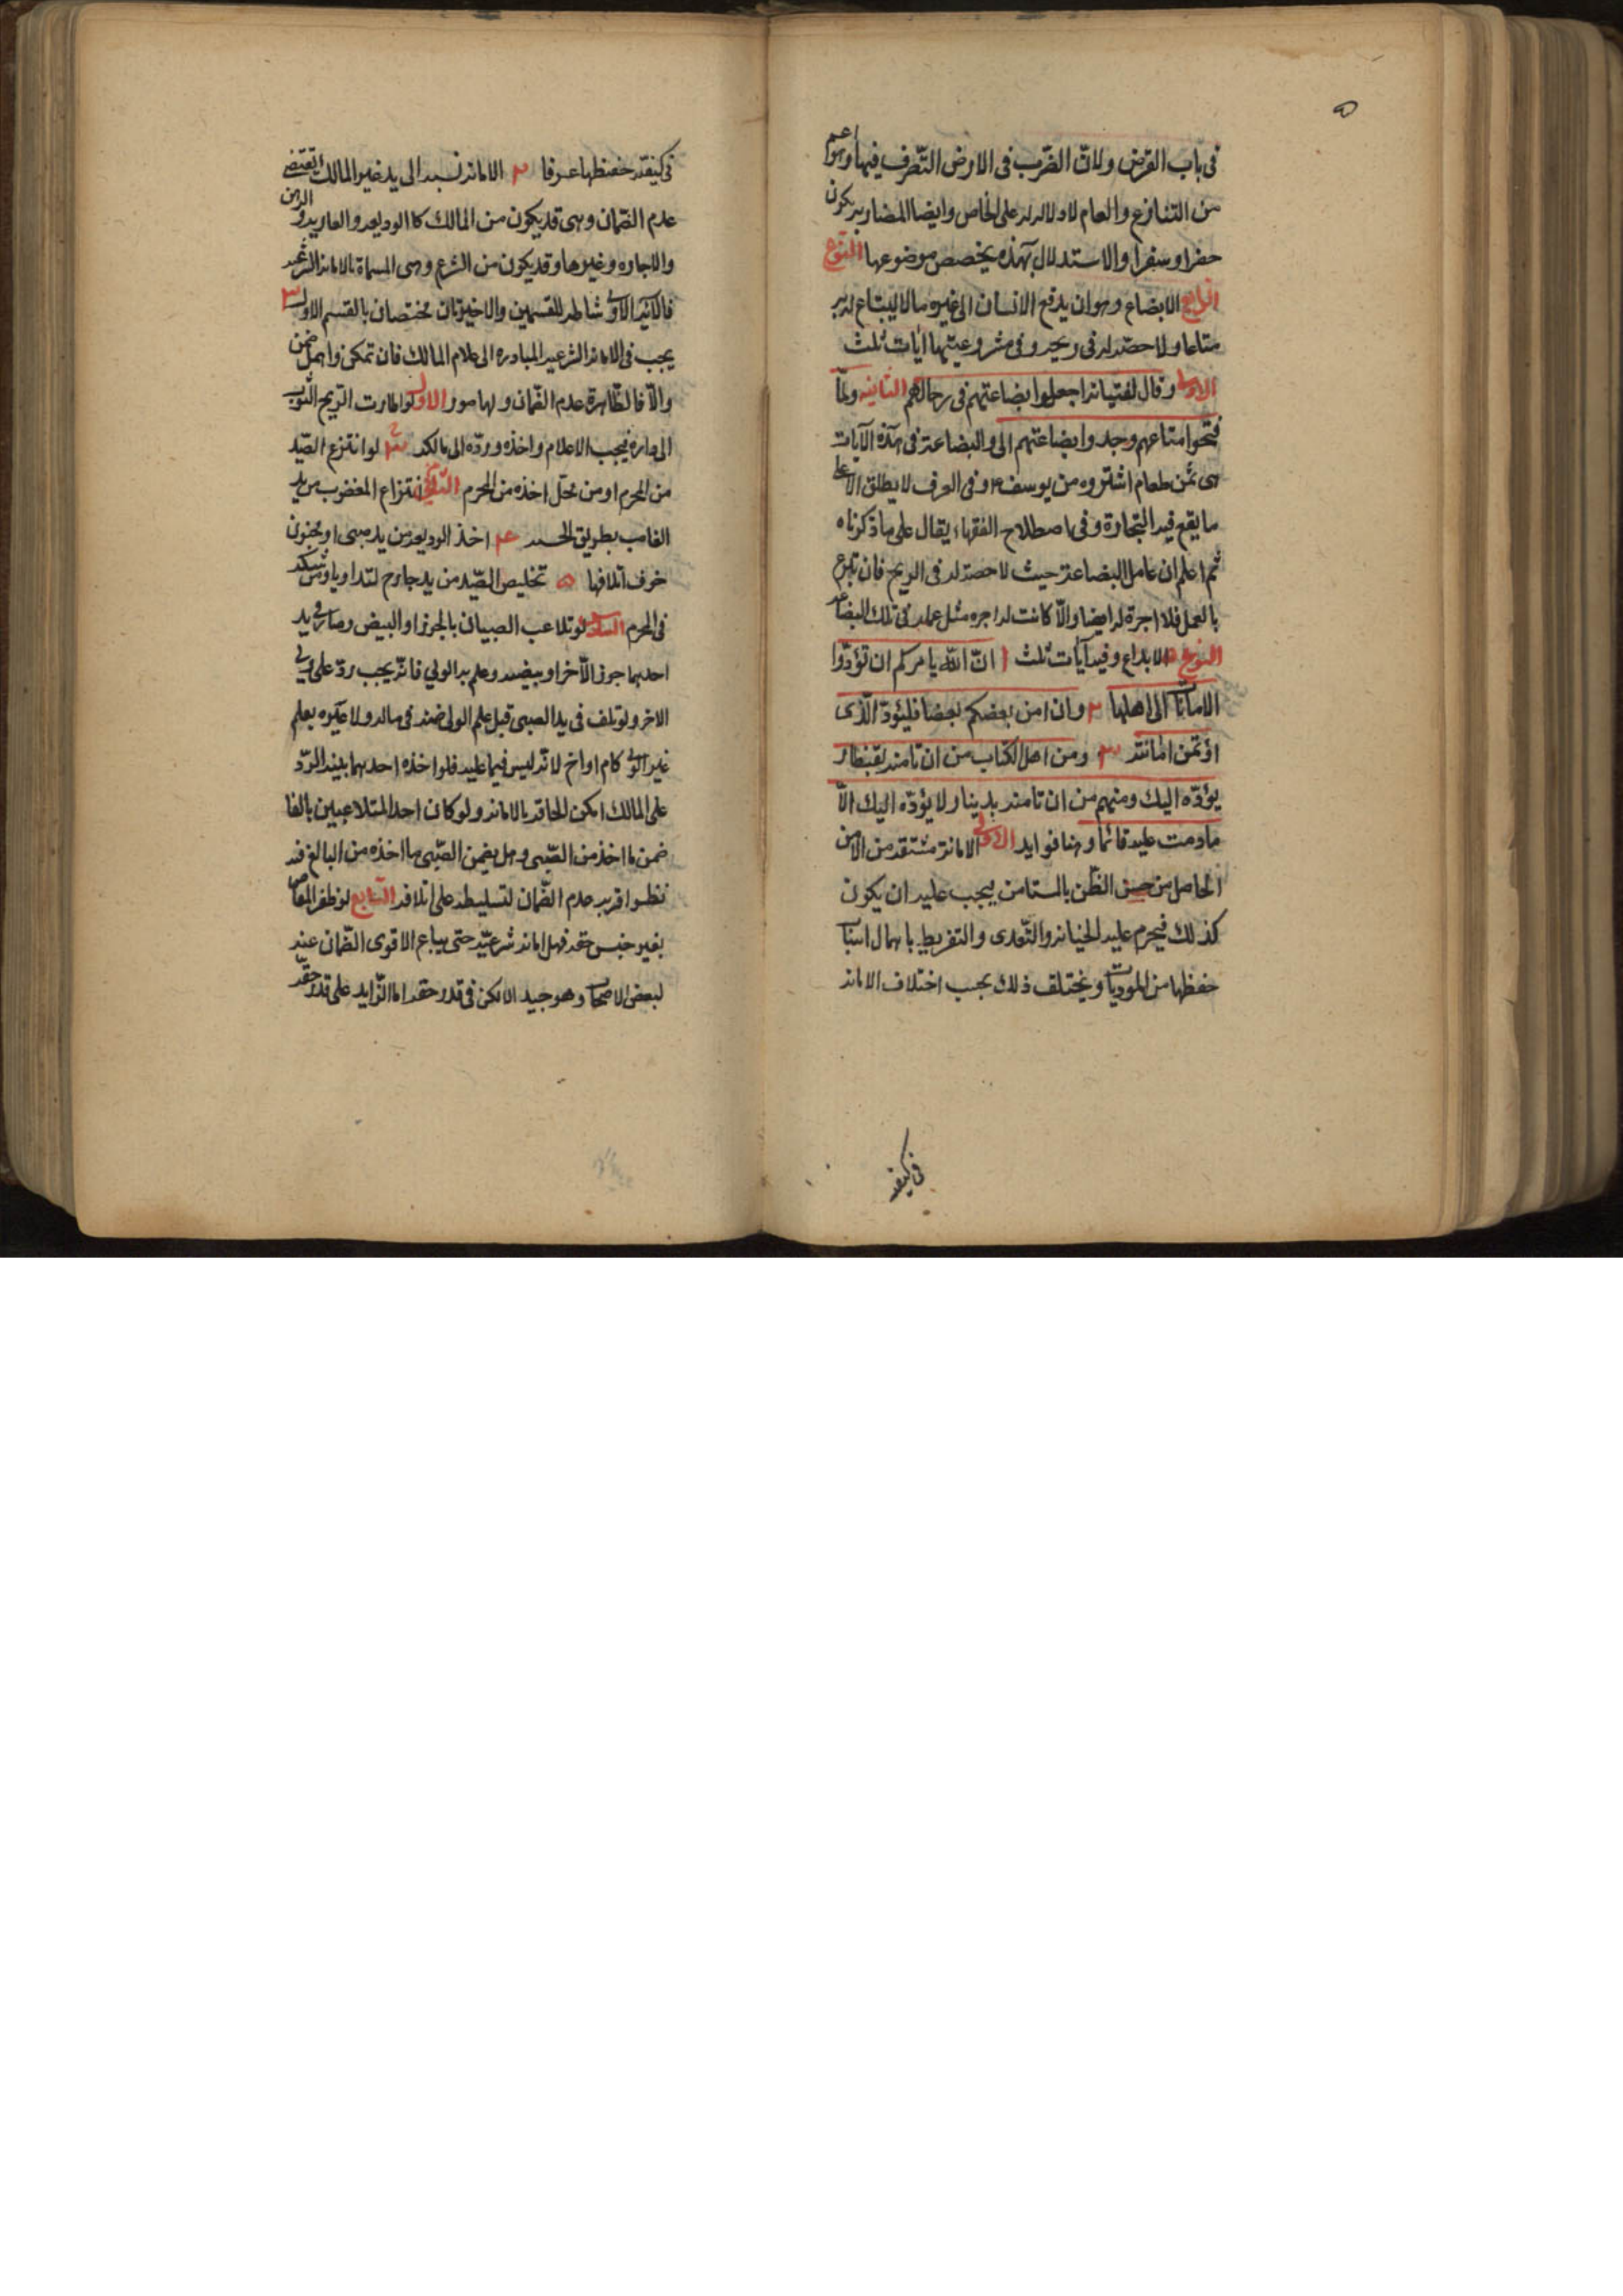 في باب القرض ولان الضّرب فى الارض التّصرف فيها وهو اعم
من التنازع والعام لا دلالة له على الخاص وايضا المضاربه يكون
حضرا وسفرا والاستدلال بهذه يخصص موضوعها النّوع
الرابع الابضاع وهو ان يدفع الانسان الى غيره مالا ليبتاع له به
متاعا ولا حصّة له فى ربحه وفى مشروعيّتها آيات ثلث
الاولى وقال لفتيانه اجعلوا بضاعتهم فى رحالهم الثانيه ولمّا
فتحوا متاعهم وجدوا بضاعتهم الى والبضاعة فى هذه الآيات
هى ثمن طعام اشتروه من يوسف ع وفى العرف لا يطلق الا على
ما يقع فيه التجارة وفى اصطلاح الفقهاء يقال على ما ذكرناه
ثم اعلم ان عامل البضاعة حيث لا حصة له فى الربح فان تبرع
بالعمل فلا اجرة له ايضا والّا كانت له اجره مثل عمله فى تلك البضاعه
النوع ٥ الايداع وفيه آيات ثلث ا انّ الله يامركم ان تؤدّوا
الامانات الى اهلها ٢ وان امن بعضكم بعضا فليؤدّ الّذى
اؤتمن امانته ٣ ومن اهل الكتاب من ان تامنه بقنطار
يؤدّه اليك ومنهم من ان تامنه بدينار لا يؤدّه اليك الّا
مادمت عليه قائما وهنا فوايد الاولى الامانة مشتقه من الامن
الحاصل من حسن الظّن بالمستامن يجب عليه ان يكون
كذلك فيحرم عليه الخيانه والتّعدى والتفريط باهمال اسباب
حفظها من الموديات ويختلف ذلك بحسب اختلاف الامانه
فى كيفيه
فى كيفيّة حفظها عرفا ٢ الامانه نسبه الى يد غير المالك يقتضى
عدم الضّمان وهى قد يكون من المالك كالوديعه والعاريه والرهن
والاجاره وغيرها وقد يكون من الشرع وهى المسماة بالامانه الشرعيه
فالآية الاولى شاملة للقسمين والاخيرتان مختصان بالقسم الاول ٣
يجب فى الامانه الشرعيه المبادره الى اعلام المالك فان تمكن واهمل ضمن
والّا فالظّاهرة عدم الضّمان ولها صور الاول لو اطارت الريح الثّوب
الى داره فيجب الاعلام واخذه وردّه الى مالكه ٢ لو انتزع الصّيد
من المحرم او من محلّ اخذه من الحرم انتزاع المغصوب من يد
الغاصب بطريق الحسبه ٤ اخذ الوديعه من يد صبى او مجنون
خوف اتلافها ٥ تخليص الصّيد من يد جارح
فى الحرم السادس لو تلاعب الصبيان بالجوز او البيض وصار فى يد
احدهما جوز الآخر او بيضه وعلم به الولي فانّه يجب ردّه على ولى
الاخر ولو تلف فى يد الصبى قبل علم الولى ضمنه فى ماله ولا عبره بعلم
غير الولى كام او اخ لانّه ليس قيما عليه فلو اخذه احدهما بنيه الردّ
على المالك امكن الحاقه بالامانه ولو كان احد المتلاعبين بالغا
ضمن ما اخذ من الصّبى وهل يضمن الصّبى ما اخذه من البالغ فيه
نظر اقربه عدم الضّمان لتسليطه على اتلافه السّابع لو ظفر المقاص
بغير جنس حقه فهل امانه شرعيّه حتى يباع الاقوى الضّمان عند
لبعض الاصحاب وهو جيد الا لكن فى قدر حقه اما الزّايد على قدر حقّه